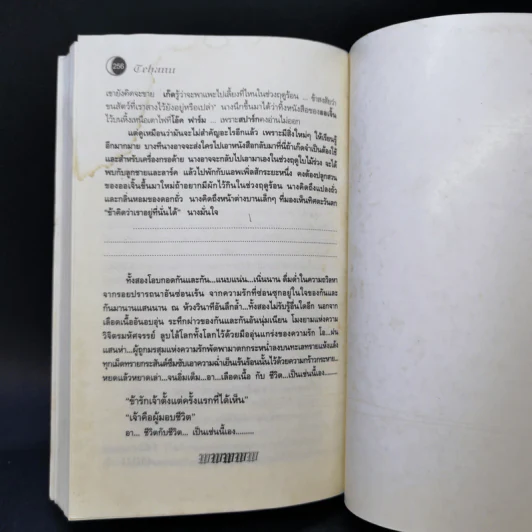 256 Tehanu
เขายังคิดจะขาย เกิดรู้ว่าจะพาแพะไปเลี้ยงที่ไหนในช่วงฤดูร้อน ... ข้าสงสัยว่า
ขนสัตว์ที่เราสางไว้ยังอยู่หรือเปล่า" นางนึกขึ้นมาได้ว่าทิ้งหนังสือของออเจ็น
ไว้บนหิ้งเหนือเตาไฟที่โอ๊ค ฟาร์ม ... เพราะสปาร์กคงอ่านไม่ออก
แต่ดูเหมือนว่ามันจะไม่สำคัญอะไรอีกแล้ว เพราะมีสิ่งใหม่ๆ ให้เรียนรู้
อีกมากมาย บางทีนางอาจจะส่งใครไปเอาหนังสือกลับมาที่นี่ถ้าเกิดจำเป็นต้องใช้
และสำหรับเครื่องกรอด้าย นางอาจจะกลับไปเอามาเองในช่วงฤดูใบไม้ร่วง จะได้
พบกับลูกชายและลาร์ค แล้วไปพักกับแอพเพิ่ลสักระยะหนึ่ง คงต้องปลูกสวน
ของออเจ็นขึ้นมาใหม่ถ้าอยากมีผักไว้กินในช่วงฤดูร้อน นางคิดถึงแปลงถั่ว
และกลิ่นหอมของดอกถั่ว นางคิดถึงหน้าต่างบานเล็กๆ ที่มองเห็นทิศตะวันตก
"ข้าคิดว่าเราอยู่ที่นั่นได้" นางมั่นใจ
ทั้งสองโอบกอดกันและกัน...แนบแน่น...เนิ่นนาน ดื่มด่ำในความรักหา
จากรอยปรารถนาอันซ่อนเร้น จากความรักที่ซ่อนซุกอยู่ในใจของกันและ
กันมานานแสนนาน ณ ห้วงวินาทีอันลึกล้ำ...ทั้งสองไม่รับรู้อื่นใดอีก นอกจาก
เลือดเนื้ออันอบอุ่น ระทึกผ่าวของกันและกันอันนุ่มเนียน โมงยามแห่งความ
วิจิตรมหัศจรรย์ ลูบไล้โลกทั้งโลกไว้ด้วยมืออุ่นแกร่งของความรัก โอ...ฝน
แสนห่า...ผู้ถูกมรสุมแห่งความรักพัดพามาตกกระหน่ำลงบนทะเลทรายแห้งแล้ง
ทุกเม็ดทรายกระสันต์ซึมซับเอาความฉ่ำเย็นเร้นร้อนนั้นไว้ด้วยความกร้าวกระหาย...
หยดแล้วหยาดเล่า...จนอิ่มเต็ม...อา...เลือดเนื้อ กับ ชีวิต...เป็นเช่นนี้เอง.........
"ข้ารักเจ้าตั้งแต่ครั้งแรกที่ได้เห็น"
"เจ้าคือผู้มอบชีวิต"
อา... ชีวิตกับชีวิต... เป็นเช่นนี้เอง.........